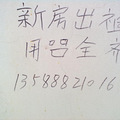 新房出租
用品全齐
13588821016